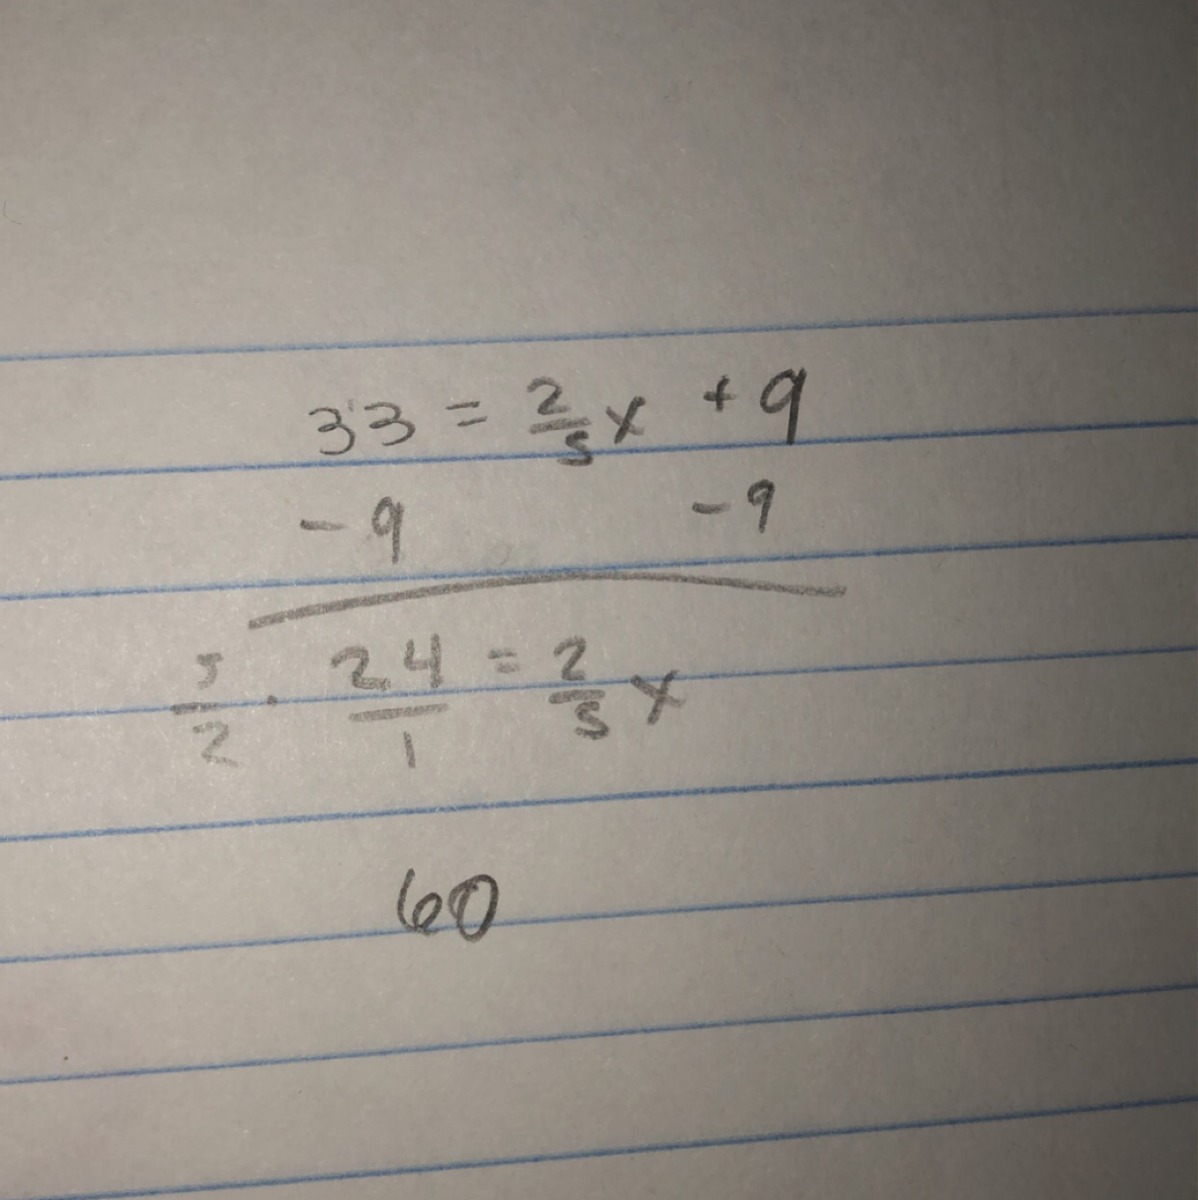 33 = 2/5 x + 9
- 9 - 9
5/2 · 24/1 = 2/5 x
60